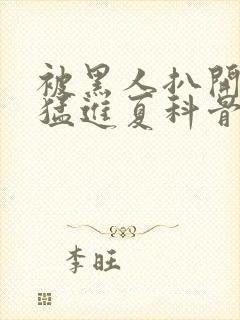 被黑人扒開
猛進夏科背
李旺